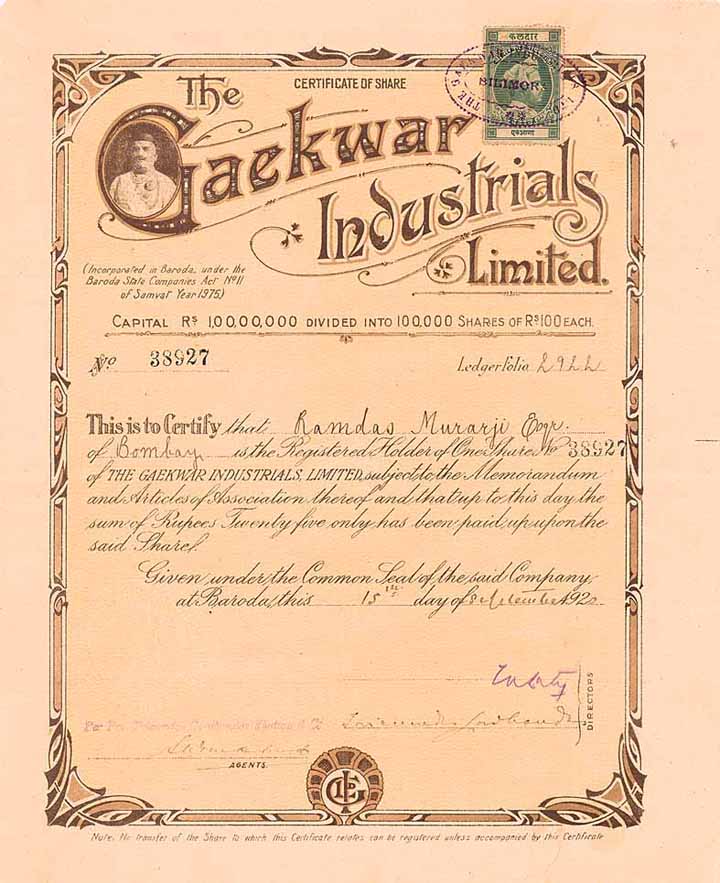 कलदार
BILIMOR
एक आना
CERTIFICATE OF SHARE
The
Gaekwar
Industrials
Limited.
(Incorporated in Baroda, under the
Baroda State Companies Act Nº II
of Samvat Year 1975)
CAPITAL RS 1,00,00,000 DIVIDED INTO 100,000 SHARES OF RS 100 EACH.
No 38927
Ledger Folio 2922
This is to Certify that Ramdas Murarji Esqr.
of Bombay is the Registered Holder of One Share No 38927
of THE GAEKWAR INDUSTRIALS, LIMITED, subject to the Memorandum
and Articles of Association thereof and that up to this day the
sum of Rupees Twenty five only has been paid up upon the
said Share.
Given under the Common Seal of the said Company,
at Baroda, this 15th day of September 1920
DIRECTORS
AGENTS.
Note. No transfer of the Share to which this Certificate relates can be registered unless accompanied by this Certificate